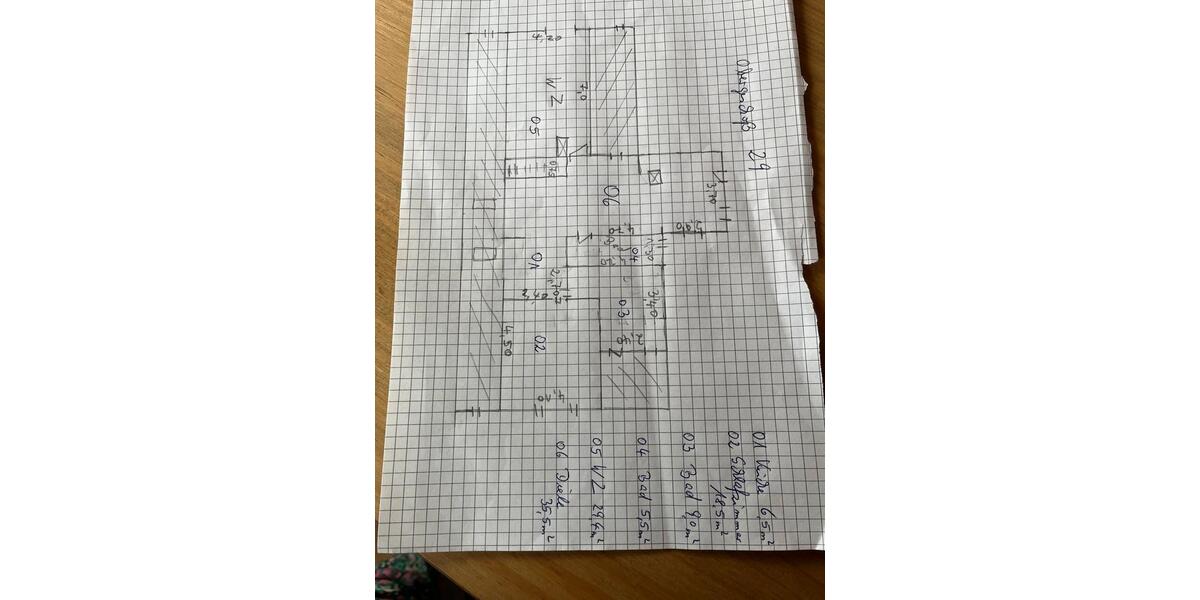 Obergeschoß 29
WZ
05
7,0
4,20
0,75
06
3,70
5,90
1,30
04
01
2,70
4,2
02
4,50
03
3,40
2,5
4,20
01 Küche 6,5m²
02 Schlafzimmer
18,5m²
03 Bad 9,0m²
04 Bad 5,5m²
05 WZ 29,4m²
06 Diele
35,5m²